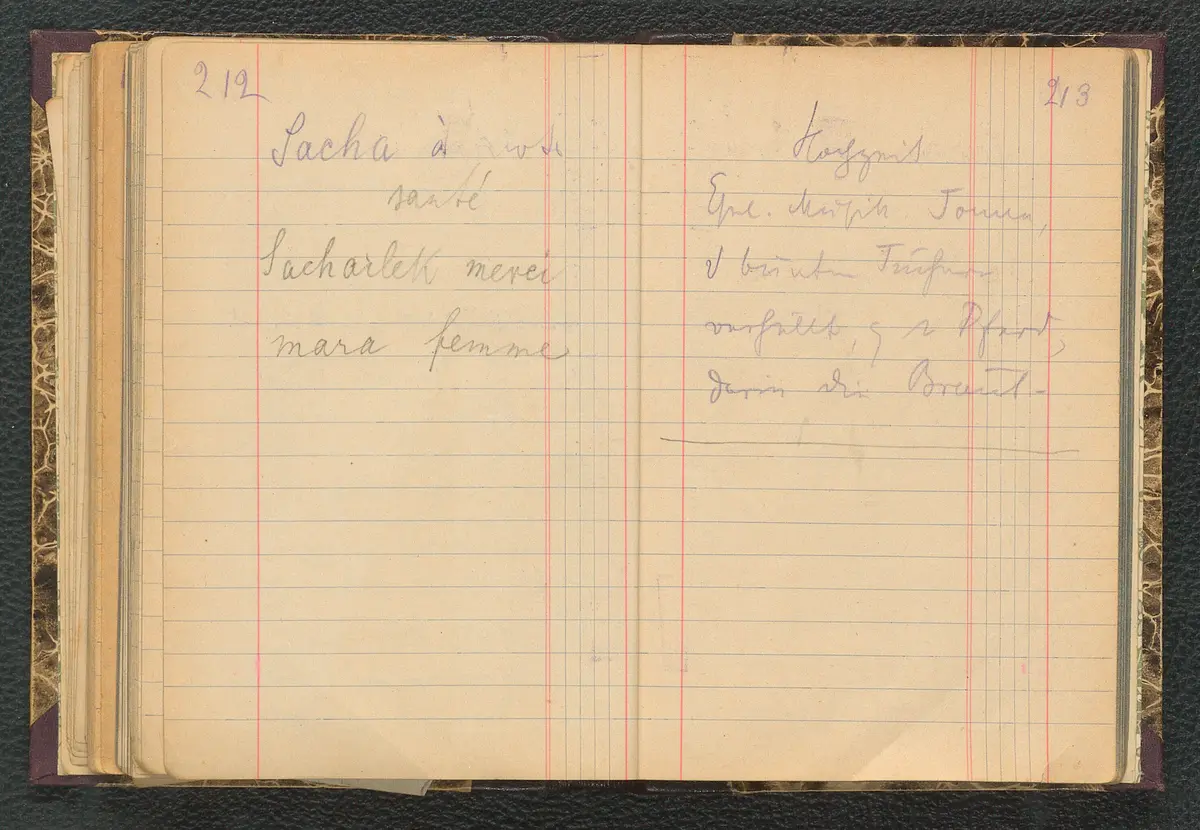 212
Sacha à votre
santé
Sacharlek merci
mara femme
213
Hochzeit
Musik
bunten Tüchern
verhüllt, Pferd,
darin die Braut-